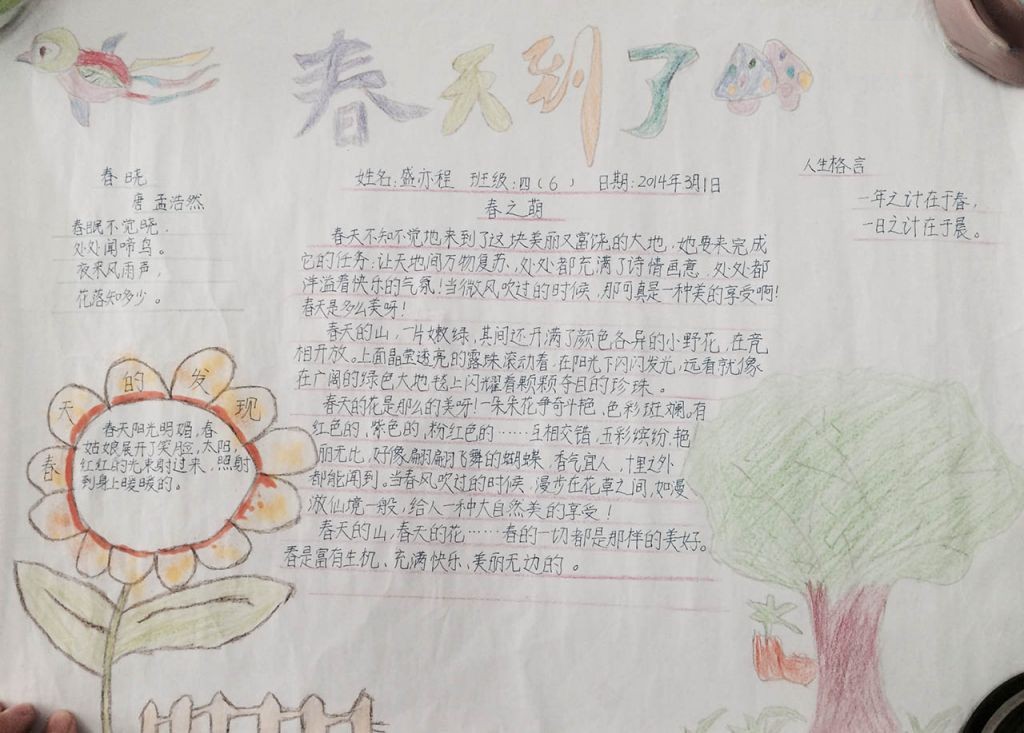 春天到了
春晓
唐 孟浩然
春眠不觉晓.
处处闻啼鸟。
夜来风雨声,
花落知多少。
姓名:盛亦程 班级:四(6) 日期:2014年3月1日
春之萌
春天不知不觉地来到了这块美丽又富饶的大地,她要来完成
它的任务:让天地间万物复苏、处处都充满了诗情画意,处处都
洋溢着快乐的气氛!当微风吹过的时候,那可真是一种美的享受啊!
春天是多么美呀!
春天的山,一片嫩绿,其间还开满了颜色各异的小野花,在竞
相开放。上面晶莹透亮的露珠滚动着,在阳光下闪闪发光,远看就像
在广阔的绿色大地毯上闪耀着颗颗夺目的珍珠。
春天的花是那么的美呀!一朵朵花争奇斗艳,色彩斑斓。有
红色的、紫色的,粉红色的……互相交错,五彩缤纷.艳
丽无比,好像翩翩飞舞的蝴蝶,香气宜人,十里之外
都能闻到。当春风吹过的时候,漫步在花草之间,如漫
游仙境一般,给人一种大自然美的享受!
春天的山,春天的花……春的一切都是那样的美好。
春是富有生机、充满快乐、美丽无边的。
人生格言
一年之计在于春,
一日之计在于晨。
春天的发现
春天阳光明媚,春
姑娘展开了笑脸,太阳,
红红的光束射过来,照射
到身上暖暖的。